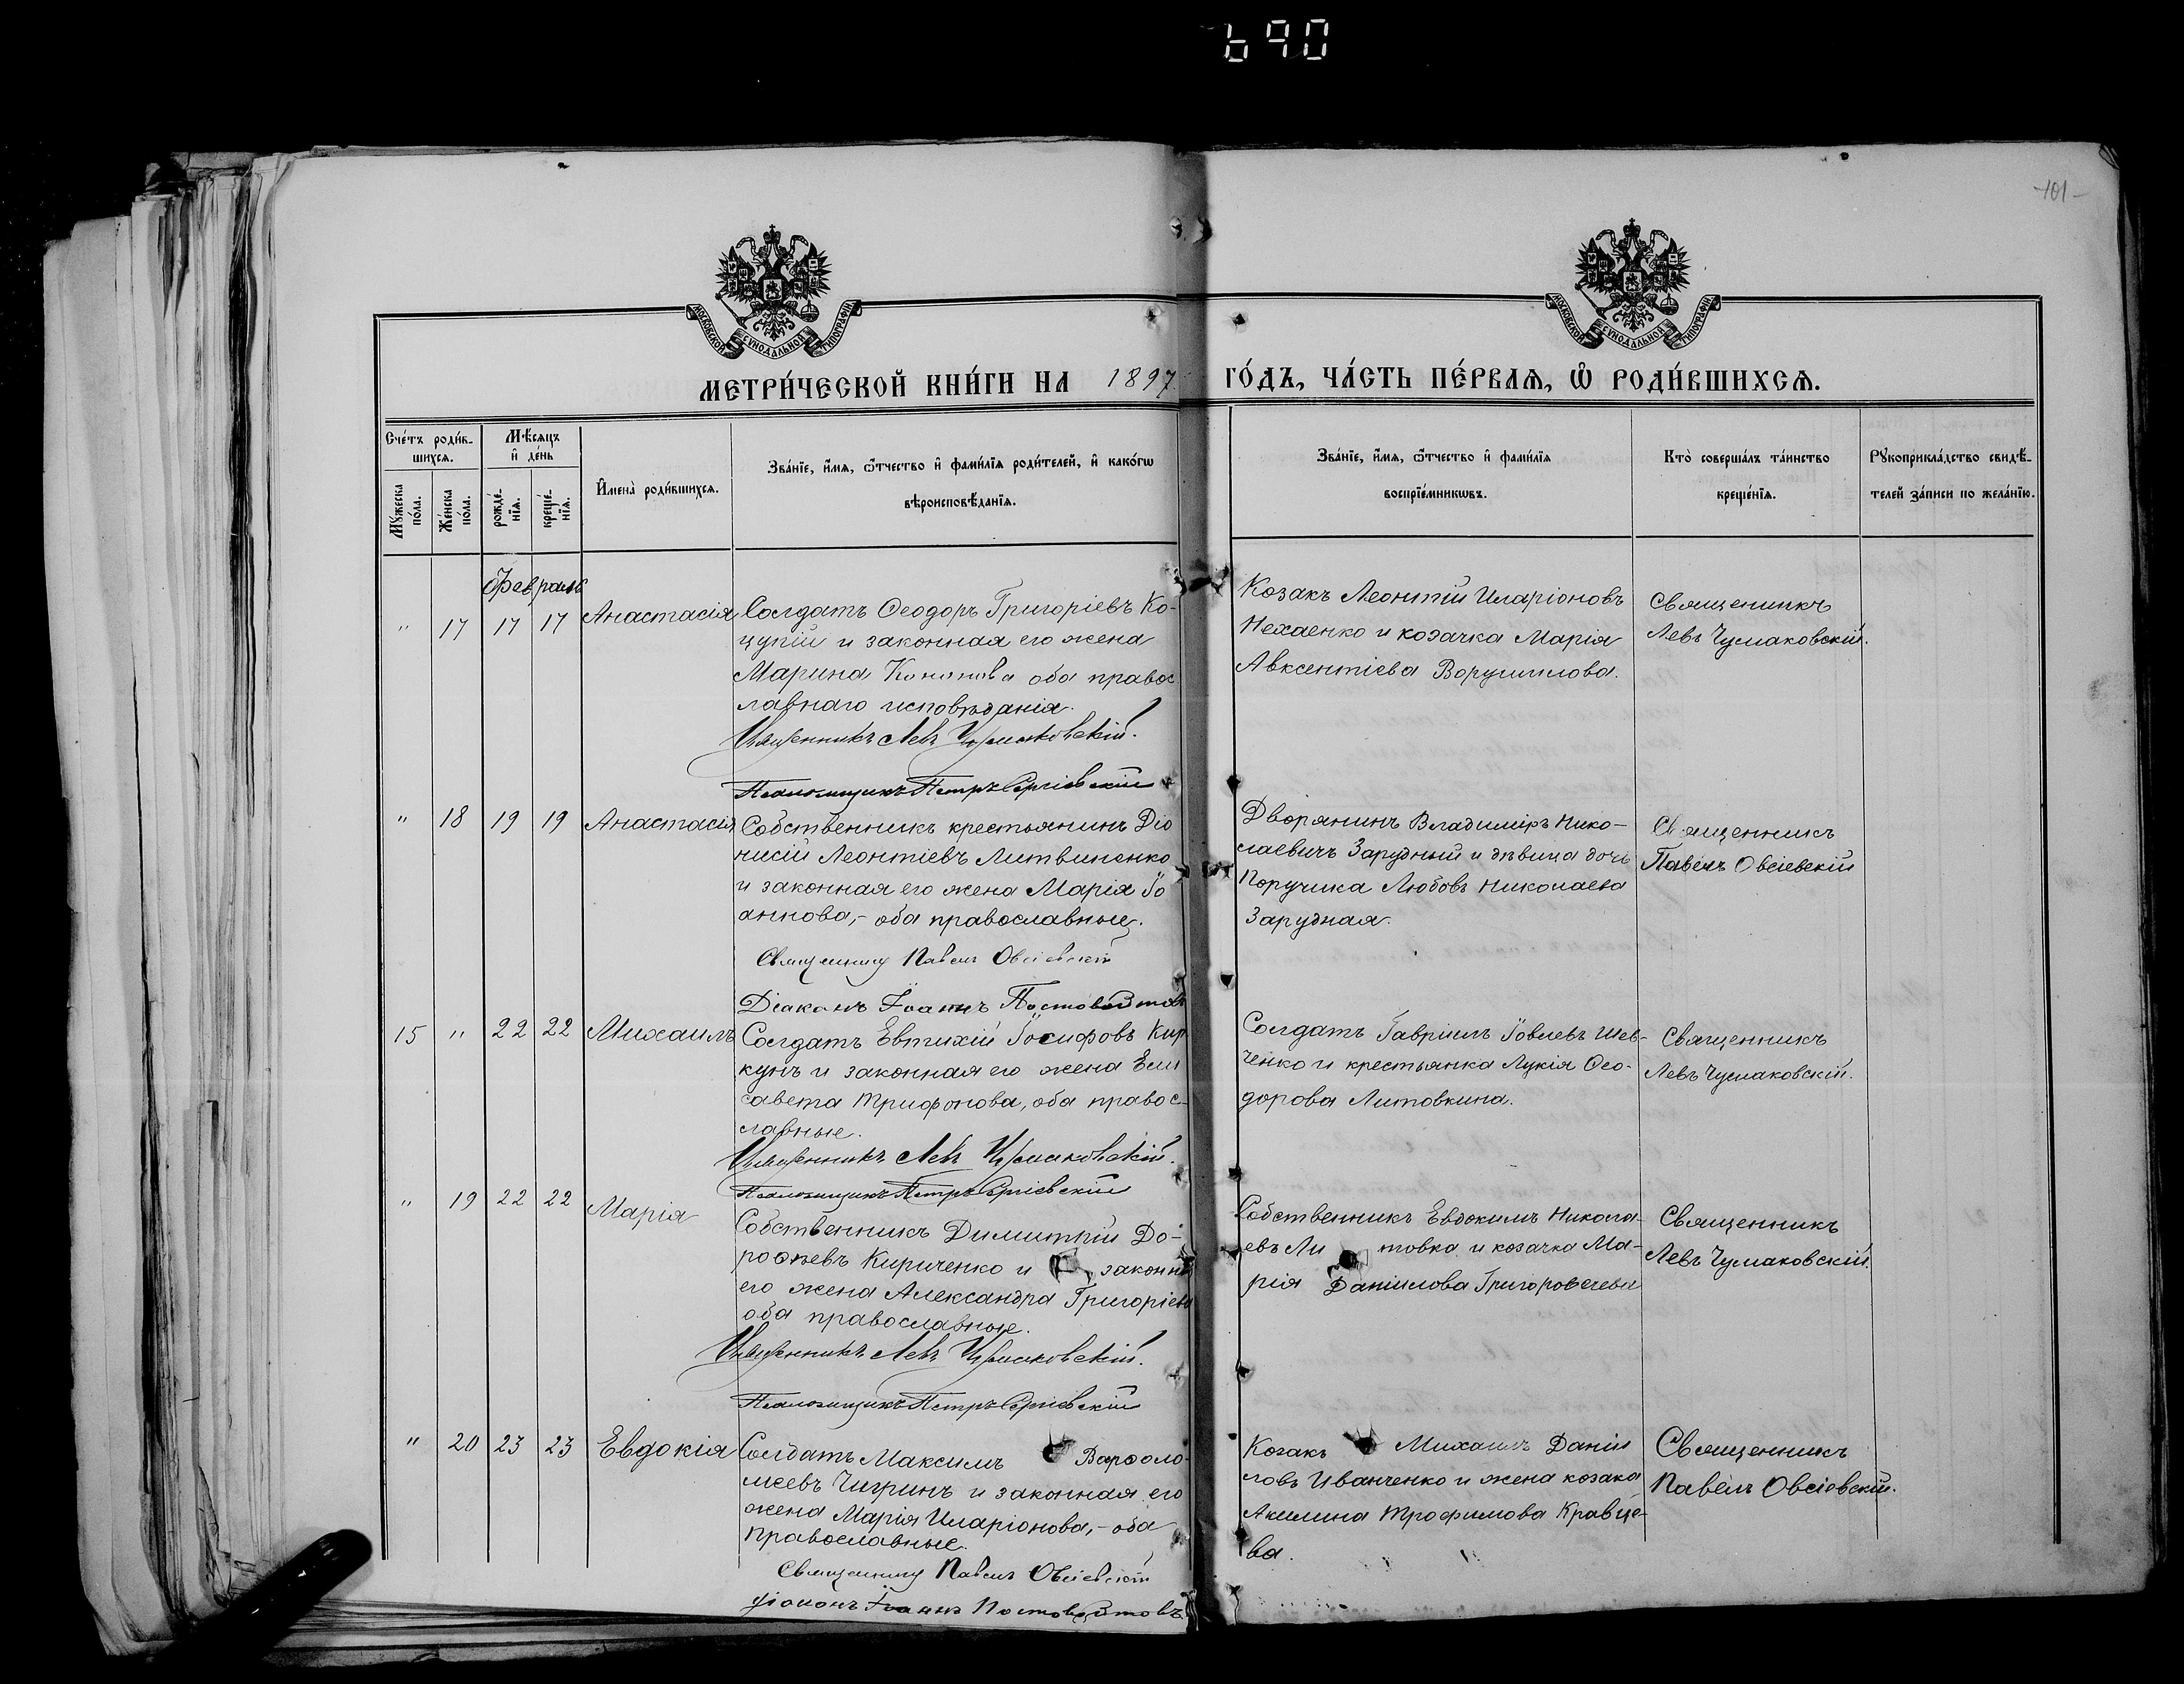 690
-101-
МОСКОВСКОЙ СУНОДАЛЬНОЙ ТИПОГРАФІИ
МОСКОВСКОЙ СУНОДАЛЬНОЙ ТИПОГРАФІИ
МЕТРИ́ЧЕСКОЙ КНИ́ГИ НА 1897 ГО́ДЪ, ЧА́СТЬ ПЕ́РВАЯ, Ѡ РОДИ́ВШИХСЯ.
Сче́тъ роди́в-
шихся.
Мѣ́сяцъ
и҆ де́нь
Му́жеска
по́ла.
Же́нска
по́ла.
рожде́-
нїя.
креще́-
нїя.
И҆мена̀ роди́вшихся.
Зва́нїе, и҆́мя, ѻ҆́тчество и҆ фами́лїя роди́телей, и҆ како́гѡ
вѣроисповѣ́данїя.
Зва́нїе, и҆́мя, ѻ҆́тчество и҆ фами́лїя
воспрїе́мникѡвъ.
Кто̀ соверша́лъ та́инство
креще́нїя.
Рꙋкоприкла́дство свидѣ́-
телей за́писи по жела́нїю.
Февраль
" 17 17 17 Анастасія
Солдатъ Ѳеодоръ Григоріевъ Ко-
цупій и законная его жена
Марина Кононова оба правос
лавнаго исповѣданія.
Священникъ Левъ Чумаковскій.
Псаломщикъ Петръ Сергіевскій
Козакъ Леонтій Иларіоновъ
Нехаенко и козачка Марія
Авксентіева Ворушилова.
Священникъ
Левъ Чумаковскій.
" 18 19 19 Анастасія
Собственникъ крестьянинъ Діо
нисій Леонтіевъ Литвиненко
и законная его жена Марія Іо
аннова,- оба православные.
Священникъ Павелъ Овсіевскій
Діаконъ Іоаннъ Постовойтовъ
Дворянинъ Владиміръ Нико-
лаевичъ Зарудный и дѣвица дочь
Поручика Любовь Николаева
Зарудная.
Священникъ
Павелъ Овсіевскій
15 " 22 22 Михаилъ
Солдатъ Евтихій Іосифовъ Кир
кунъ и законная его жена Ели
савета Трифонова, оба правос-
лавные.
Священникъ Левъ Чумаковскій.
Псаломщикъ Петръ Сергіевскій
Солдатъ Гавріилъ Іовлевъ Шев-
ченко и крестьянка Лукія Ѳео-
дорова Литовкина.
Священникъ
Левъ Чумаковскій.
" 19 22 22 Марія
Собственникъ Димитрій До-
роѳеевъ Кириченко и законная
его жена Александра Григоріева
оба православные.
Священникъ Левъ Чумаковскій.
Псаломщикъ Петръ Сергіевскій
Собственникъ Евдокимъ Никола-
евъ Ли товка и козачка Ма-
рія Даніилова
Священникъ
Левъ Чумаковскій.
" 20 23 23 Евдокія
Солдатъ Максимъ Варѳоло-
меевъ Чигринъ и законная его
жена Марія Иларіонова,- оба
православные.
Священникъ Павелъ Овсіевскій
Діаконъ Іоаннъ Постовойтовъ
Козакъ Михаилъ Даніи
ловъ Иванченко и жена козака
Акилина Трофимова Кравце-
ва.
Священникъ
Павелъ Овсіевскій.